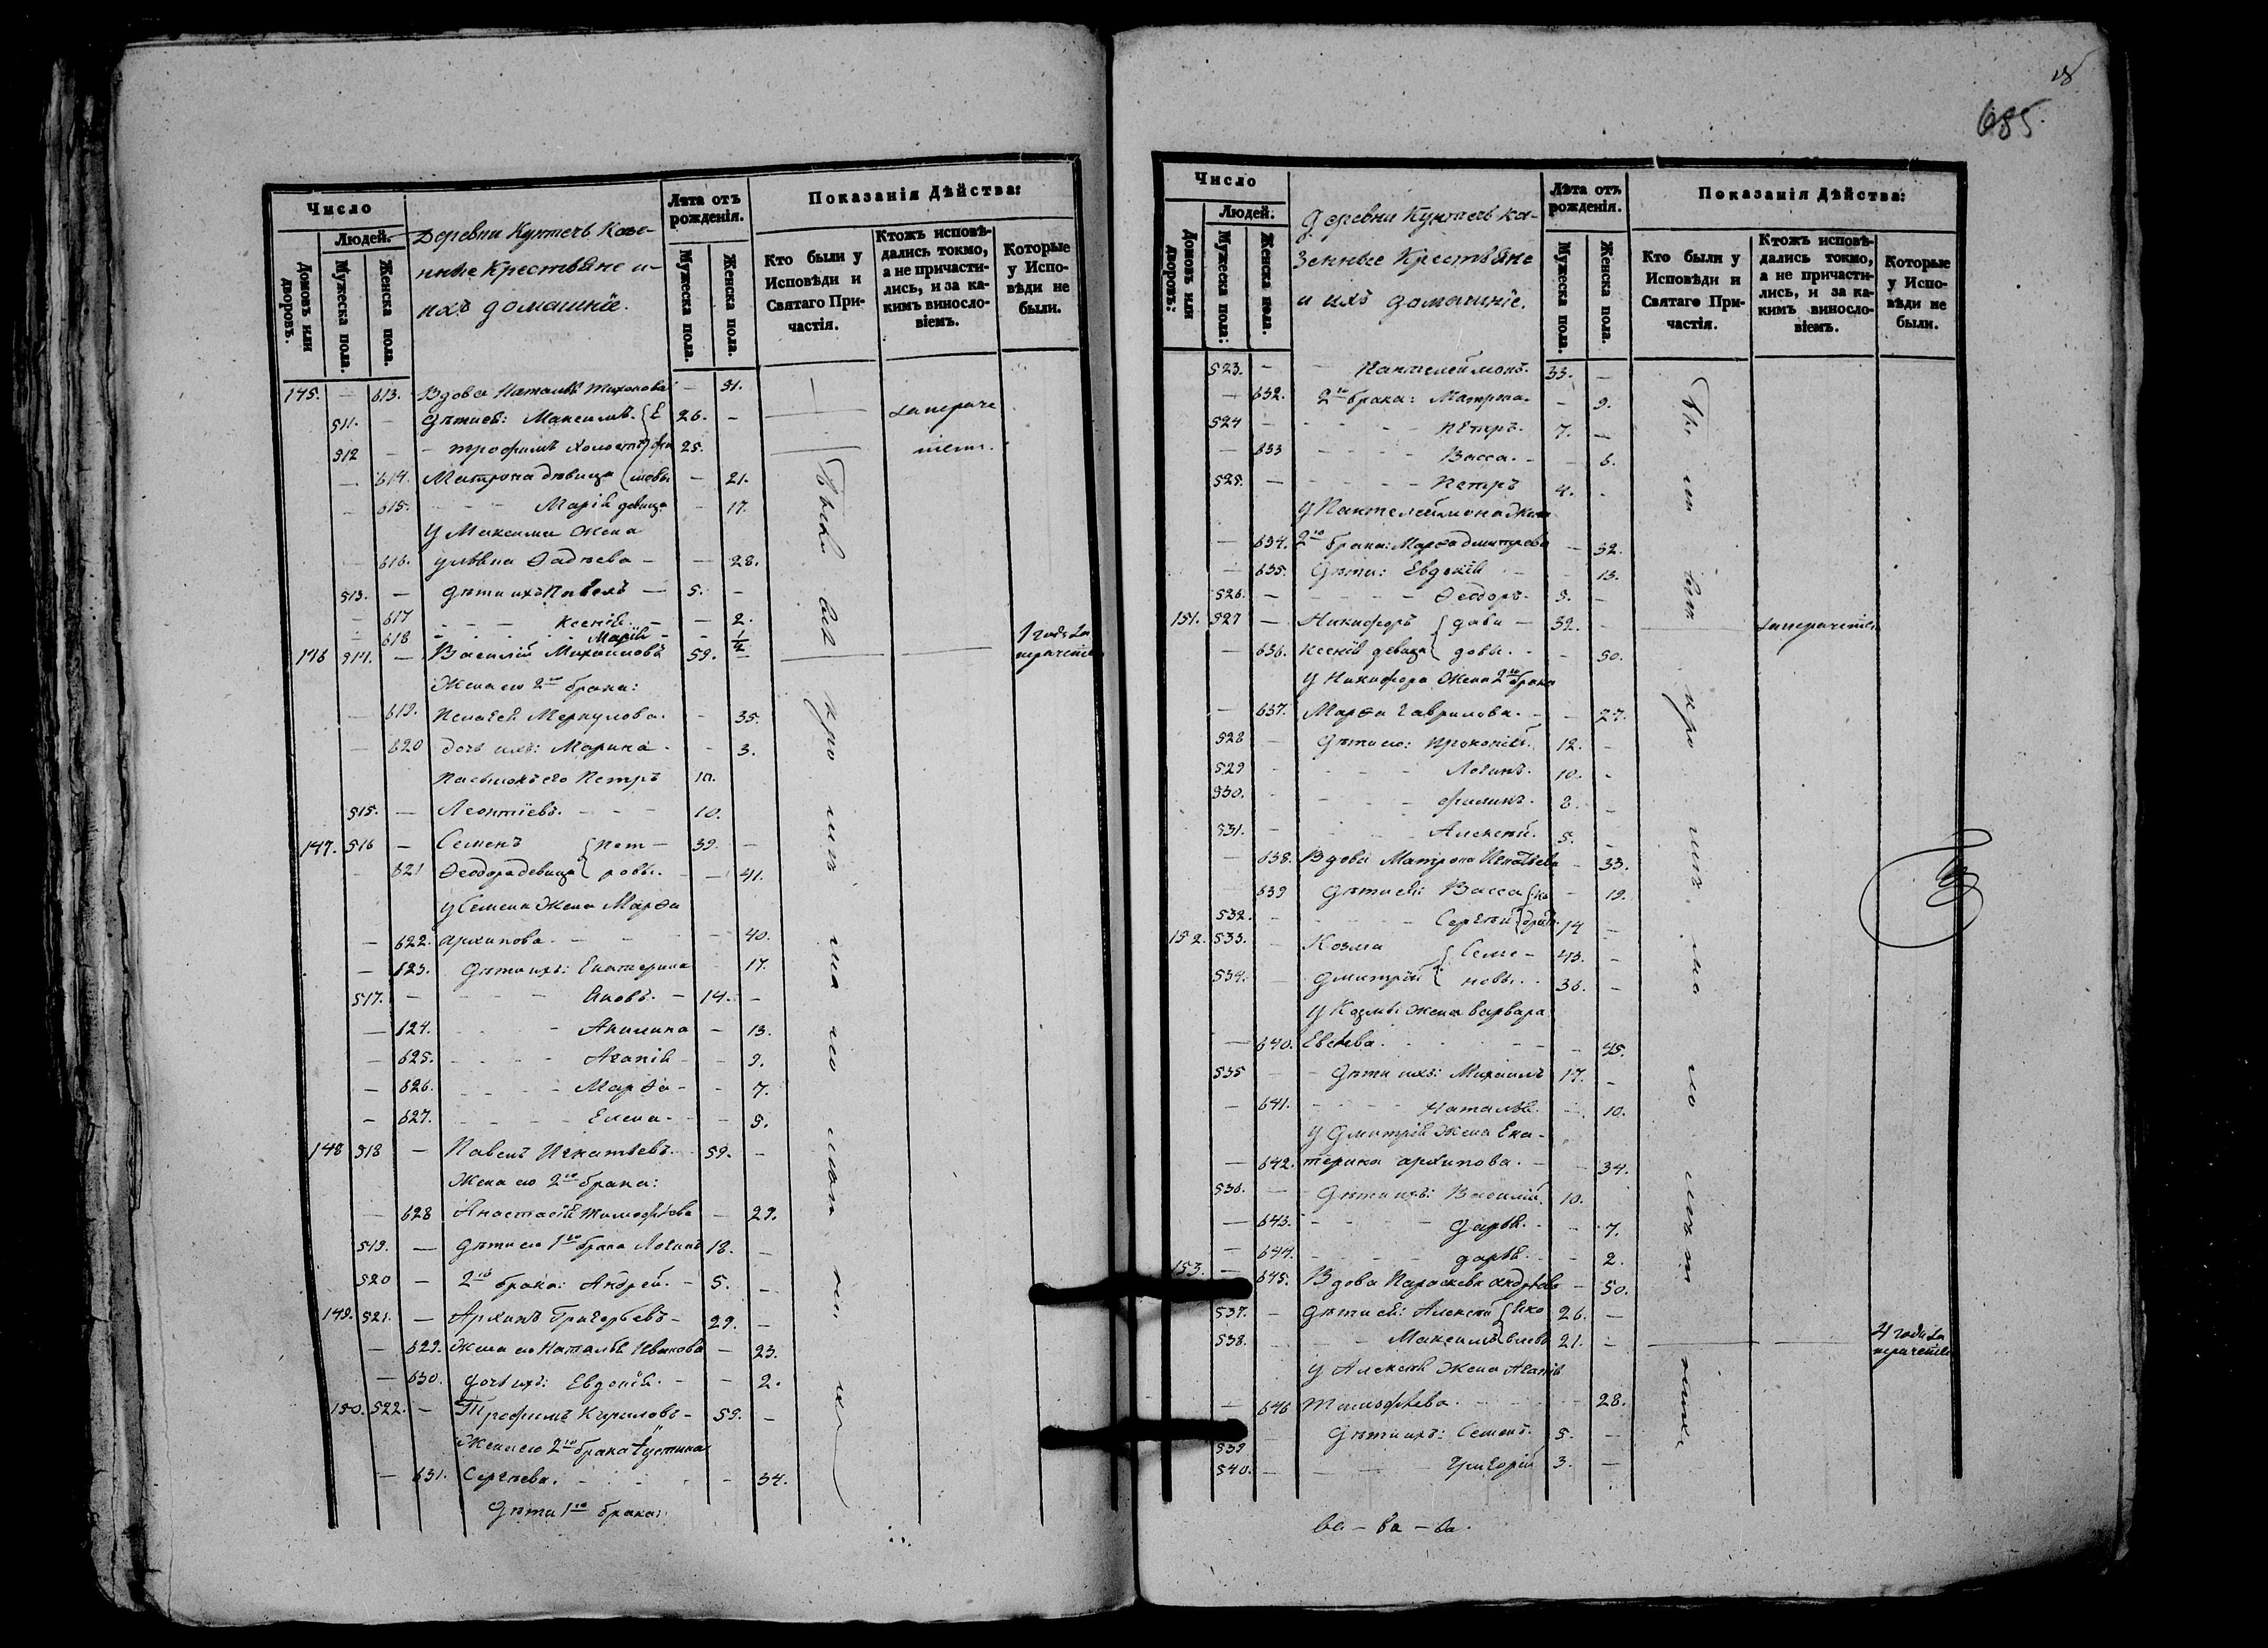 685.
Число
Людей.
Домовъ или дворовъ.
Мужеска пола.
Женска пола.
Деревни Кунтечь Казе-
нные Крестьяне и
ихъ домашніе.
Лѣта отъ рожденія.
Мужеска пола.
Женска пола.
Показанія Дѣйства:
Кто были у Исповѣди и Святаго При-частія.
Ктожъ исповѣ-дались токмо, а не причасти-лись, и за ка-кимъ виносло-віемъ.
Которые у Испо-вѣди не были.
145. — 613. Вдова Наталья Тихонова — 51.
511. — Дѣти ея: Максимъ 26. —
512 — Трофимъ холостъ 25.
— 614. Матрона дѣвица — 21.
— 615. Марія девица — 17.
У Максима Жена
— 616. Ульяна Фадѣева — 28.
513. — Дѣти ихъ Павелъ — 5. —
— 617 Ксенія — 2.
— 618 Марія — ½
146 514. — Василій Михаиловъ 59. —
Жена его 2го брака:
— 619. Пелагея Меркулова. — 35.
— 620 дочь ихъ: Марина. — 3.
Пасынокъ его Петръ 10.
515. — Леонтіевъ. 10.
147. 516 — Семенъ Пет- 39. —
— 621 Ѳеодора девица ровы. — 41.
У Семена Жена Марѳа
— 622. Архипова. — 40.
— 623. Дѣти ихъ: Екатерина 17.
517. — Яковъ. — 14. —
— 624. Акилина — 13.
— 625. Агапія — 9.
— 626. Марѳа — 7.
— 627. Елена — 5.
148 518 — Павелъ Игнатьевъ. 59. —
Жена его 2го брака:
— 628 Анастасія Тимофѣева — 29.
519. — Дѣти его 1го брака Логинъ 18. —
520 — 2го брака: Андрей. — 5. —
149. 521. — Архипъ Григорьевъ — 29. —
— 629. Жена его Наталья Иванова — 23.
— 630. дочь ихъ: Евдокія. — 2.
150. 522. — Трофимъ Кириловъ — 59. —
Жена его 2го брака Іустина
— 631. Сергѣева. — 34.
Дѣти 1го брака:
Число
Людей.
Домовъ или дворовъ:
Мужеска пола:
Женска пола.
Деревни Кунтечь ка-
зенные Крестьяне
и ихъ домашніе.
Лѣта отъ рожденія.
Мужеска пола.
Женска пола.
Показанія Дѣйства:
Кто были у Исповѣди и Святаго При-частія.
Ктожъ исповѣ-дались токмо, а не причасти-лись, и за ка-кимъ виносло-віемъ.
Которые у Испо-вѣди не были.
523. — Пантелеймонъ. 33. —
— 632. 2го брака: Матрона — 9.
524 — Петръ. 7. —
— 633 Васса. — 6.
525. — Петръ 4. —
У Пантелеймона Жена
— 634. 2го брака: Марѳа Дмитрева — 32.
— 635. Дѣти: Евдокія — 13.
526. — Ѳеодоръ. 5. —
151. 527 — Никифоръ Давы- 39. —
— 636. Ксенія девица довы. — 50.
У Никифора Жена 2го брака
— 637. Марѳа Гаврилова. — 27.
528 — Дѣти его: Прокопій. 12. —
529 Логинъ. 10. —
530. Филипъ. 8. —
531. — Алексѣй. 5. —
— 638. Вдова Матрона Игнатьева — 33.
639 Дѣти ея: Васса — 19.
532. — Сергѣй 14 —
152. 533. — Козма Семе- 43. —
534. — Дмитрій новы. 36. —
У Козмы Жена Варвара
— 640. Евсѣева. — 45.
535 — Дѣти ихъ: Михаилъ 17. —
— 641. Наталья. — 10.
У Дмитрія Жена Ека-
— 642. терина Архипова. — 34.
536. — Дѣти ихъ: Василій. 10.
— 643. Дарья. — 7.
— 644. Дарья. — 2.
153. — 645. Вдова Параскева Андрѣева — 50.
537. — Дѣти ея: Алексѣй 26. —
538. — Максимъ 21. —
У Алексѣя Жена Агапія
— 646 Тимофѣева. — 28.
539 — Дѣти ихъ: Семенъ. 5. —
540. — Григорій 3. —
ва - ва - ва.